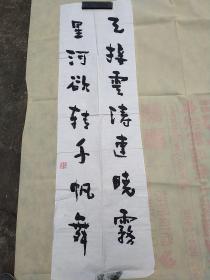 天接雲濤連曉霧
星河欲轉千帆舞